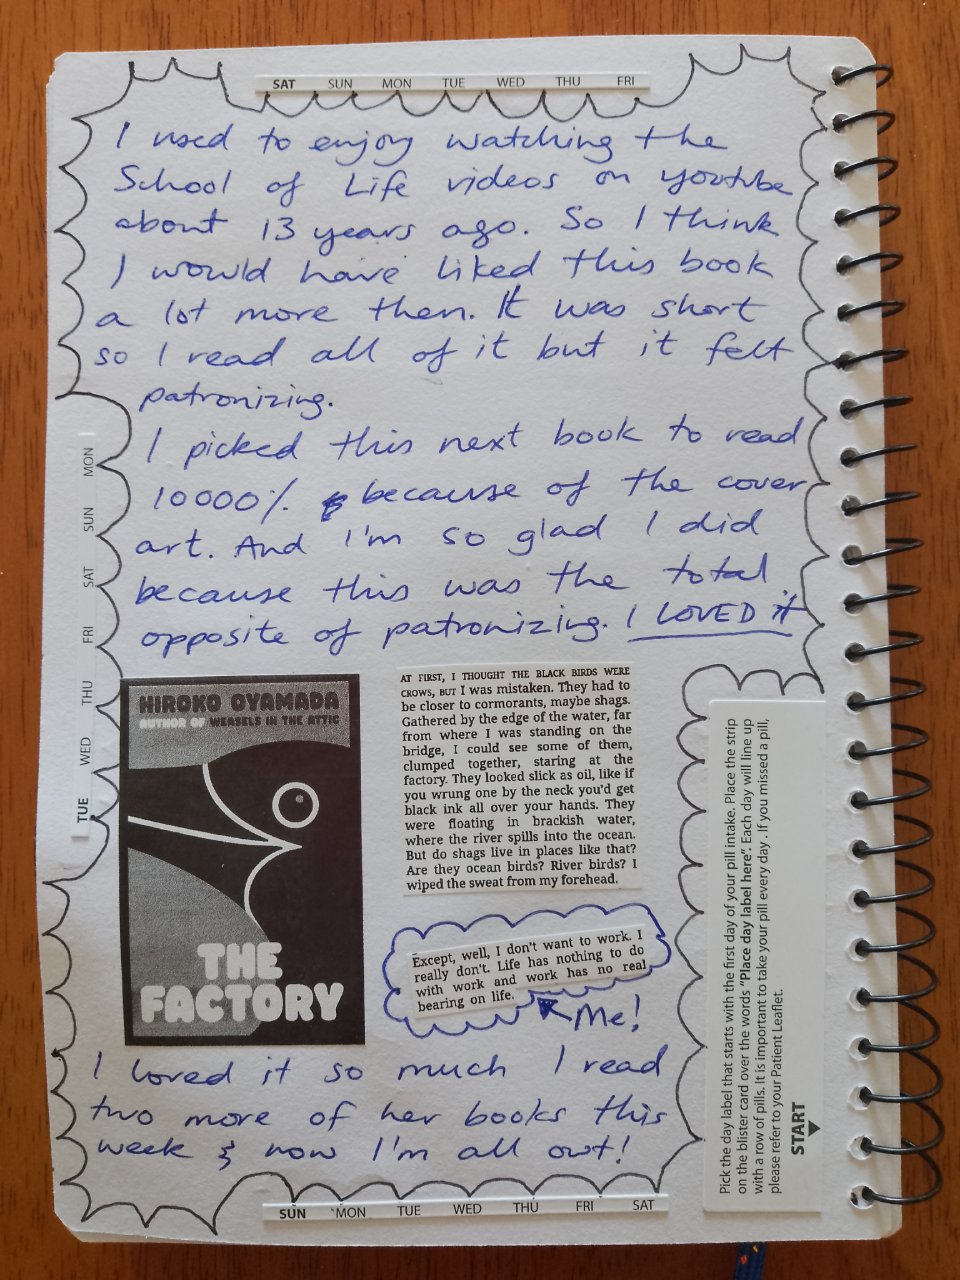 SAT SUN MON TUE WED THU FRI
I used to enjoy watching the
School of Life videos on youtube
about 13 years ago. So I think
I would have liked this book
a lot more then. It was short
so I read all of it but it felt
patronizing.
I picked this next book to read
10000% because of the cover
art. And I'm so glad I did
because this was the total
opposite of patronizing. I LOVED it
TUE WED THU FRI SAT SUN MON
HIROKO OYAMADA
AUTHOR OF WEASELS IN THE ATTIC
THE
FACTORY
AT FIRST, I THOUGHT THE BLACK BIRDS WERE
CROWS, BUT I was mistaken. They had to
be closer to cormorants, maybe shags.
Gathered by the edge of the water, far
from where I was standing on the
bridge, I could see some of them,
clumped together, staring at the
factory. They looked slick as oil, like if
you wrung one by the neck you'd get
black ink all over your hands. They
were floating in brackish water,
where the river spills into the ocean.
But do shags live in places like that?
Are they ocean birds? River birds? I
wiped the sweat from my forehead.
Except, well, I don't want to work. I
really don't. Life has nothing to do
with work and work has no real
bearing on life.
Me!
Pick the day label that starts with the first day of your pill intake. Place the strip
on the blister card over the words "Place day label here". Each day will line up
with a row of pills. It is important to take your pill every day. If you missed a pill,
please refer to your Patient Leaflet.
START
I loved it so much I read
two more of her books this
week & now I'm all out!
SUN MON TUE WED THU FRI SAT